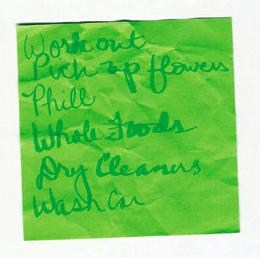 Work out
Pick up flowers
Phill
Whole Foods
Dry Cleaners
Wash Car